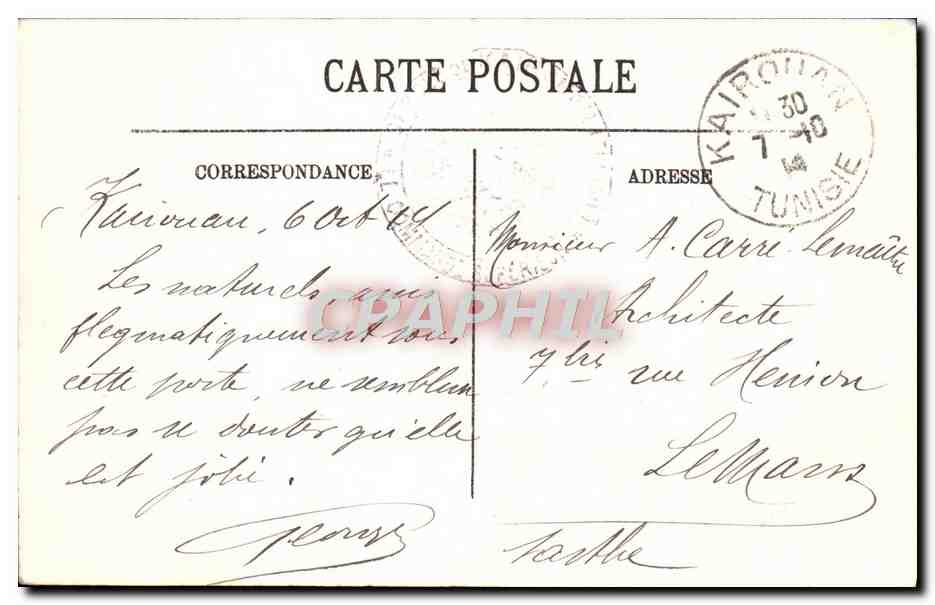 CARTE POSTALE
KAIROUAN
30
7 -10
14
TUNISIE
CORRESPONDANCE
ADRESSE
Kairouan, 6 Oct 14
Les naturels, assis
flegmatiquement sous
cette porte, ne semblent
pas se douter qu'elle
est jolie.
Georges
Monsieur A. Carré-Lemaître
Architecte
7 bis rue
Le Mans
Sarthe
CPAPHIL